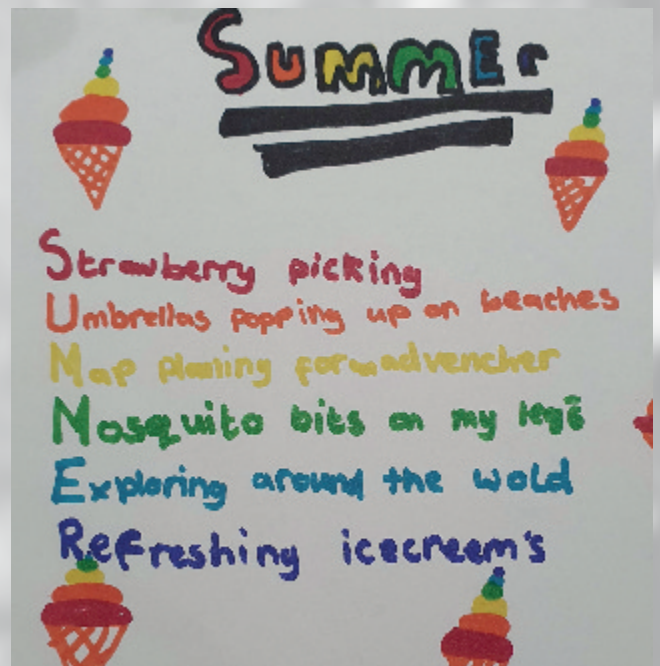 Summer
Strawberry picking
Umbrellas popping up on beaches
Map planing for advencher
Mosquito bits on my legs
Exploring around the wold
Refreshing icecreem's